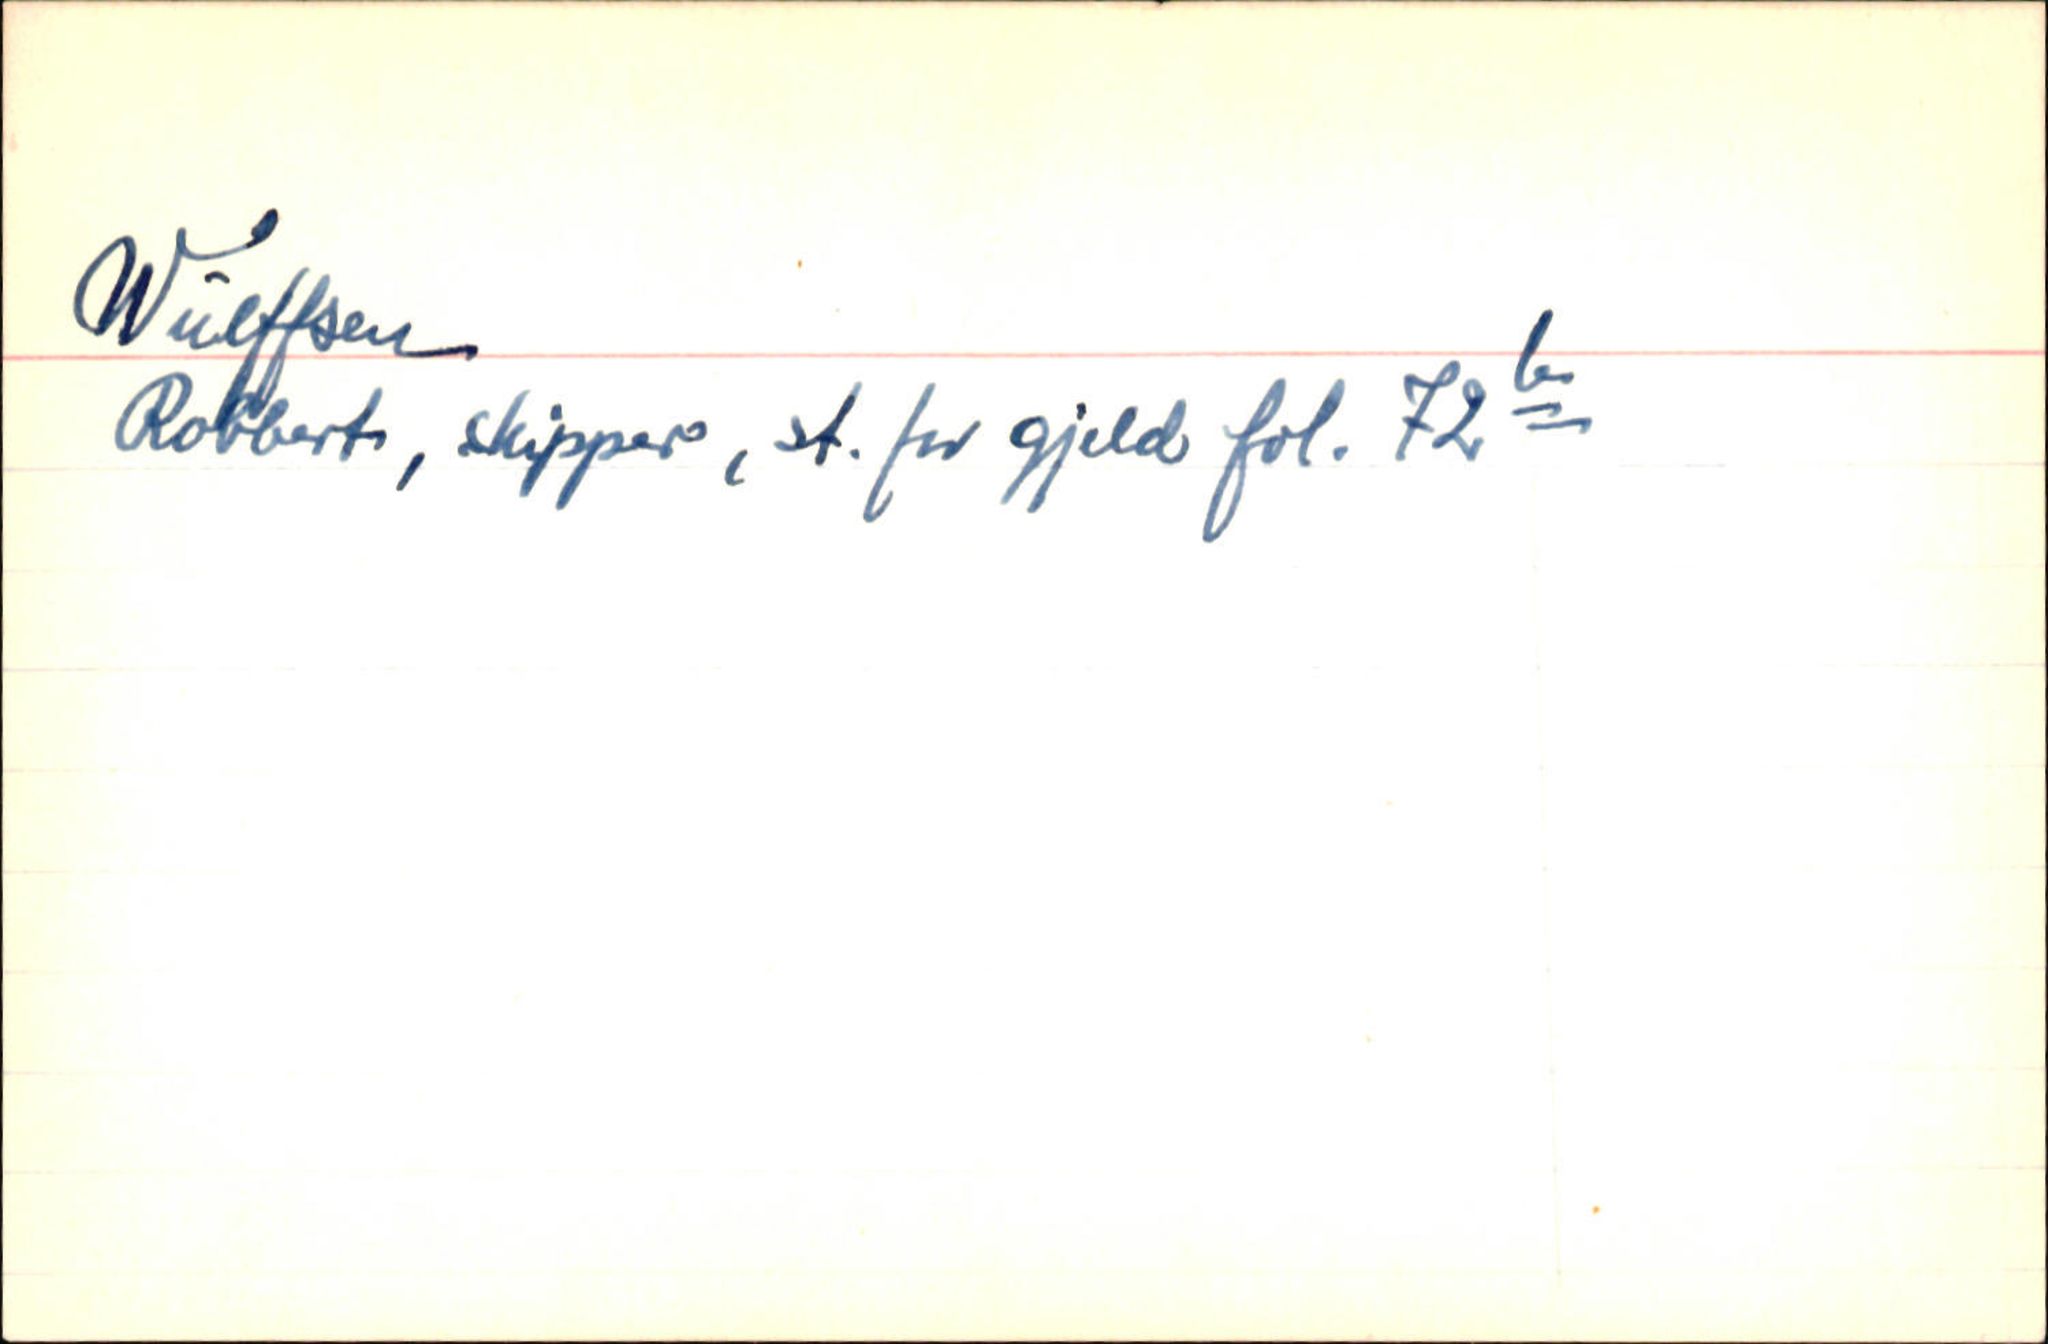 Wulffsen
Robbert, skipper, st. for gjeld fol. 72 b